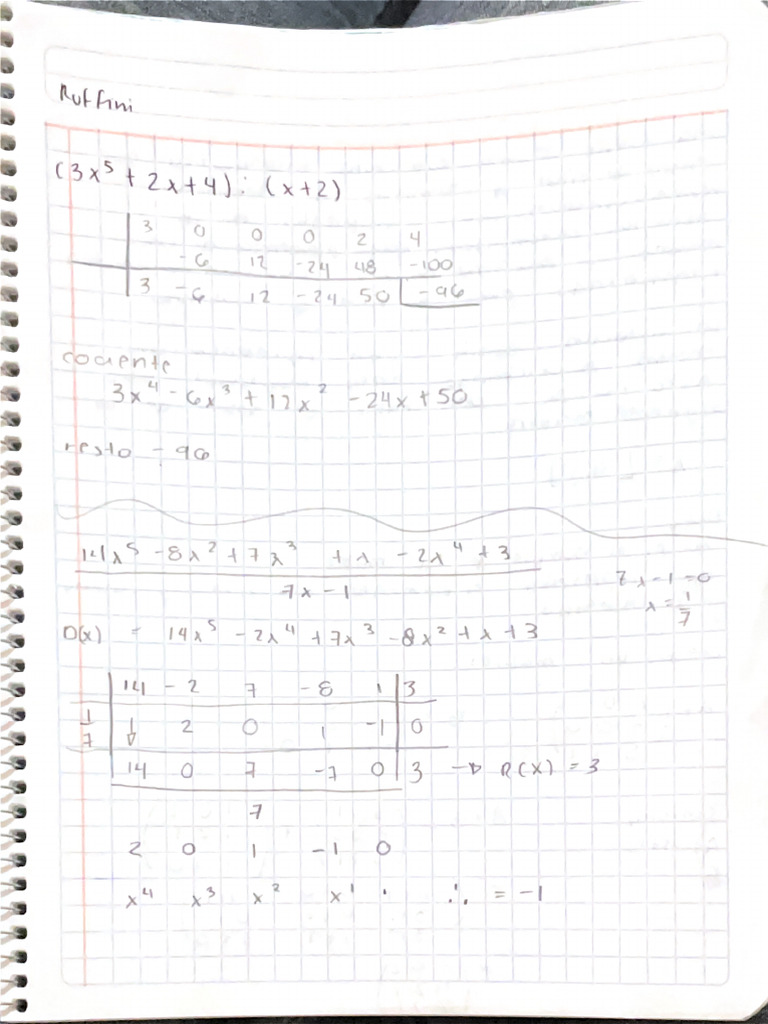 Ruffini
(3x⁵ + 2x + 4) : (x + 2)
3 0 0 0 2 4
-6 12 -24 48 -100
3 -6 12 -24 50 -96
cociente
3x⁴ - 6x³ + 12x² - 24x + 50
resto - 96
14x⁵ - 8x² + 7x³ + x - 2x⁴ + 3
7x - 1
7x - 1 = 0
x = 1/7
D(x) = 14x⁵ - 2x⁴ + 7x³ - 8x² + x + 3
14 -2 7 -8 1 3
1/7 ↓ 2 0 1 -1 0
14 0 7 -7 0 3 → R(x) = 3
7
2 0 1 -1 0
x⁴ x³ x² x¹ · ∴ = -1